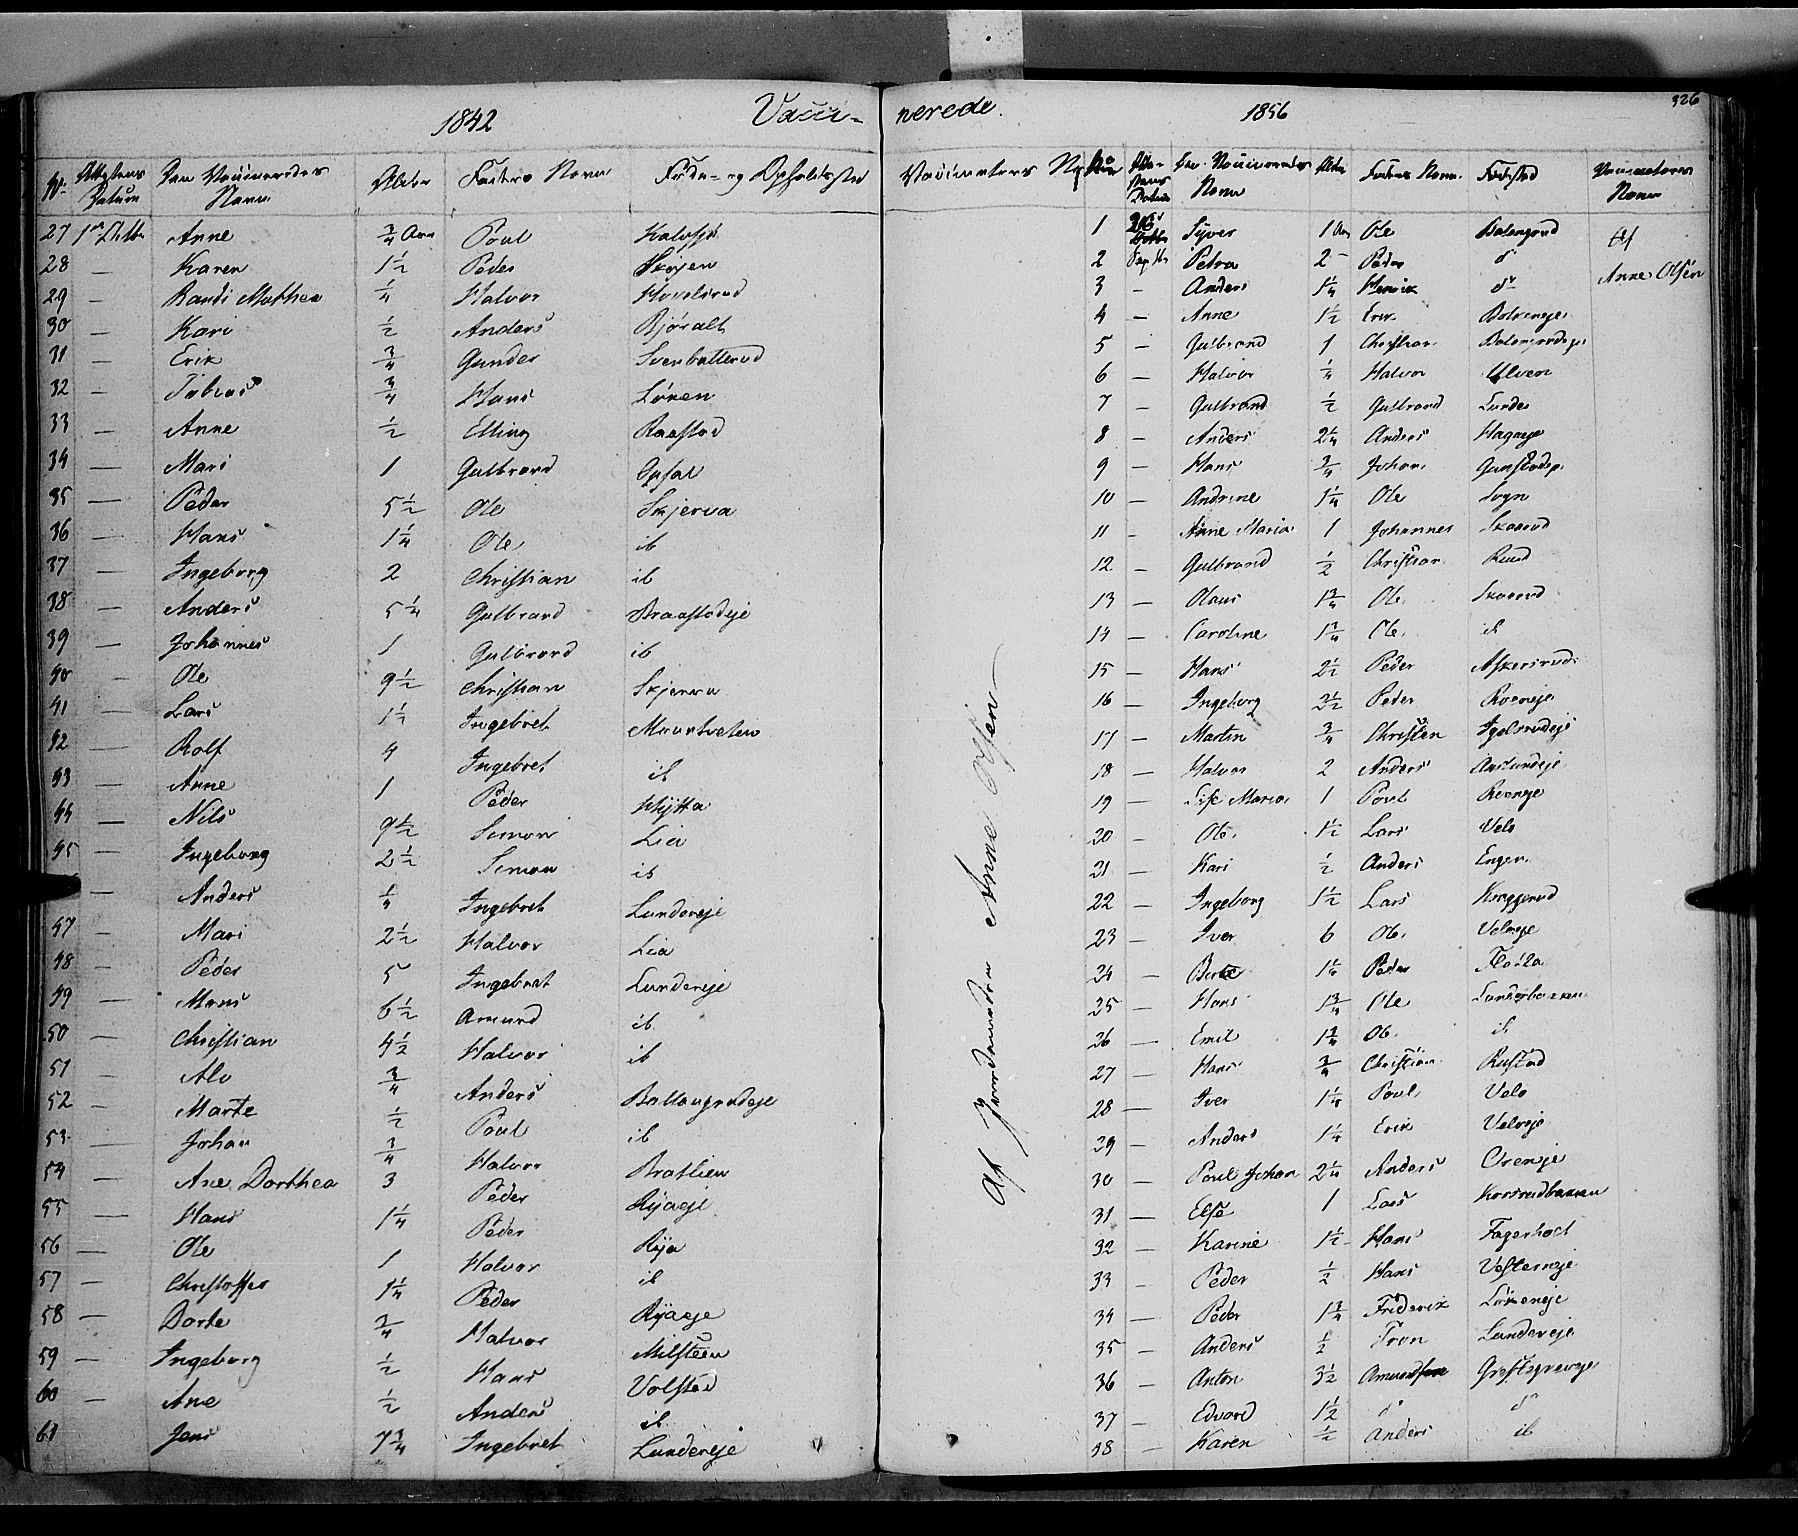 1842 Vacci-
No. Attestens Datum Den Vaccineredes Navn Alder Faders Navn Føde- og Opholdssted
27 1ste Octbr Anne 3/4 Aar Poul
28 — Karen 1 1/2 Peder Skøyen
29 — Randi Mathea 1/4 Halvor Hovelsrud
30 — Kari 1/2 Anders Björalt
31 — Erik 3/4 Gunder Svenbatterud
32 — Tobias 3/4 Hans Løken
33 — Anne 1/2 Elling Raastad
34 — Mari 1 Gulbrand Opsal
35 — Peder 5 1/2 Ole Skjerva
36 — Hans 1 1/4 Ole ib
37 — Ingeborg 2 Christian ib
38 — Anders 5 1/4 Gulbrand Braastadeje
39 — Johannes 1 Gulbrand ib
40 — Ole 9 1/2 Christian Skjerva
41 — Lars 1 1/2 Ingebret
42 — Rolf 4 Ingebret ib
43 — Anne 1 Peder Hytta
44 — Nils 9 1/2 Simon Lia
45 — Ingeborg 2 1/2 Simon ib
— Anders 1/4 Ingebret Lundereje
47 — Mari 2 1/2 Halvor Lia
48 — Peder 5 Ingebret Lundereje
49 — Mons 6 1/2 Amund ib
50 — Christian 4 1/2 Halvor ib
51 — Alv 3/4 Anders Ballangrudeje
52 — Marte 1/2 Poul ib
53 — Johan 3/4 Halvor Bratlien
54 — Ane Dorthea 3 Peder Ryaeje
55 — Hans 1 1/4 Peder Rya
56 — Ole 1 Halvor ib
57 — Christoffer 1 1/4 Peder Ryaeje
58 — Dorte 3/4 Halvor Milsteen
59 — Ingeborg 1/2 Hans Volstad
60 — Ane 1/2 Anders ib
61 Jens 7 3/4 Ingebret Lundereje
nerede. 1856 326
Vaccinators
Af Jordemoder Anne Olsen
Den Vaccineredes Navn Alder Faders Navn. Fødested Vaccinatorens Navn
1 Syver 1 Aar Ole Balangrud Af
2 Petra 2 — Peder do Anne Olsen
3 — Anders 1 1/4 Henrik do
4 — Anne 1 1/2 Erik
5 — Gulbrand 1 Christian Balangrudeje
6 — Halvor 1/4 Halvor Ulven
7 — Gulbrand 1/2 Gulbrand Lunder
8 — Anders 2 1/4 Anders Hagaeje
9 — Hans 3/4 Johan
10 — Andrine 1 1/4 Ole Sogn
11 — Anne Maria 1 Johannes Skaarud
12 — Gulbrand 1/2 Christian Ruud
13 — Olaus 1 3/4 Ole Skaarud
14 — Caroline 1 3/4 Ole ib
15 — Hans 2 1/2 Peder Askersrud
16 — Ingeborg 2 1/2 Peder Roeneje
17 — Martin 3/4 Christen Igelsrudeje
18 — Halvor 2 Anders
19 — Lise Maria 1 Poul Roeneje
20 — Ole 1 1/2 Lars Velo
21 — Kari 1/2 Anders Engen
22 — Ingeborg 1 1/2 Lars Kraggerud
23 — Iver 6 Ole Veloeje
24 — Berte 1 1/4 Peder Flaata
25 — Hans 1 3/4 Ole Lunderbakken
26 — Emil 1 3/4 Ole ib
27 — Hans 3/4 Christian Rustad
28 — Iver 1 1/4 Poul Velo
29 — Anders 1 1/4 Erik Veloeje
30 — Poul Johan 2 1/4 Anders Oreneje
31 — Else 1 Lars Korsrudbakken
32 — Karine 1 1/2 Hans Fagerholt
33 — Peder 1/2 Hans Vesterneje
34 — Peder 1 3/4 Friderik Løkeneje
35 — Anders 1/2 Tron Lundereje
36 — Anton 3 1/2
37 — Edvard 1 1/2 do do
38 — Karen 1/2 Anders ib